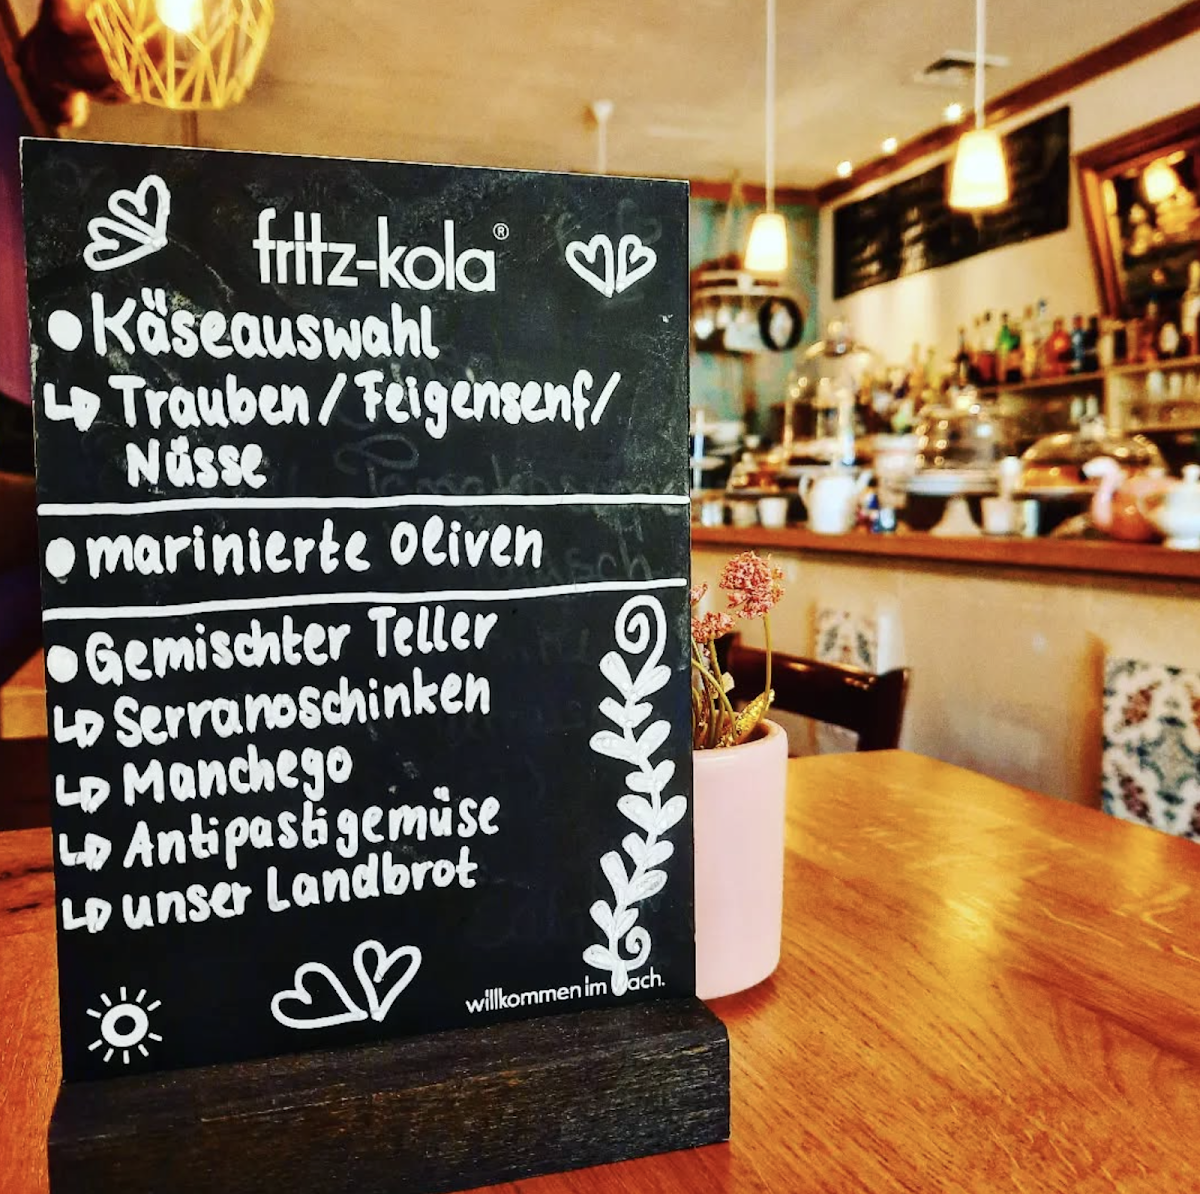 fritz-kola®
Käseauswahl
Trauben / Feigensenf /
Nüsse
marinierte Oliven
Gemischter Teller
Serranoschinken
Manchego
Antipastigemüse
unser Landbrot
willkommen im ach.